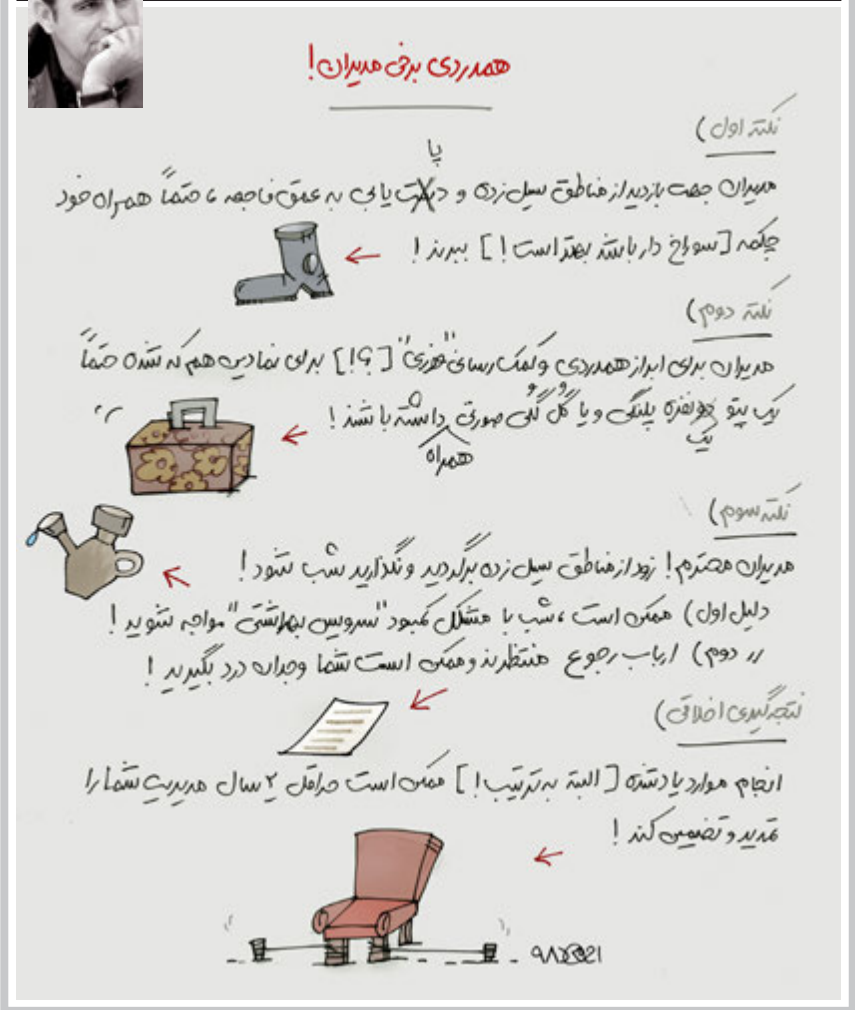 همدردی برخی مدیران!
نکته اول)
پا
مدیران جهت بازدید از مناطق سیل زده و دست یابی به عمق فاجعه، حتماً همراه خود
چکمه [سوراخ دار باشد بهتر است!] ببرند!
نکته دوم)
مدیران برای ابراز همدردی و کمک رسانی "فوری" [؟!] برای نمادین هم که شده حتماً
یک پتو دو نفره پلنگی و یا گُل گُلی صورتی داشته باشند!
یک
همراه
نکته سوم)
مدیران محترم! زود از مناطق سیل زده برگردید و نگذارید شب شود!
دلیل اول) ممکن است، شب با مشکل کمبود "سرویس بهداشتی" مواجه شوید!
〃 دوم) ارباب رجوع منتظرند و ممکن است شما وجدان درد بگیرید!
نتیجه گیری اخلاقی)
انجام موارد یاد شده [البته به ترتیب!] ممکن است حداقل ۲ سال مدیریت شما را
تمدید و تضمین کند!